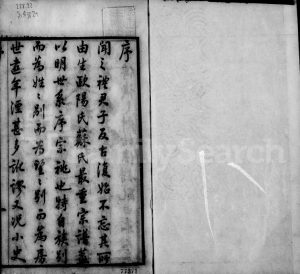 序
聞之禮君子反古復始不忘其所
由生歐陽氏蘇氏最重宗譜蓋
以明世系序宗祧也特自族別
而為姓姓別而為望望別而為房
世遠年湮甚多訛謬又況小史
FamilySearch